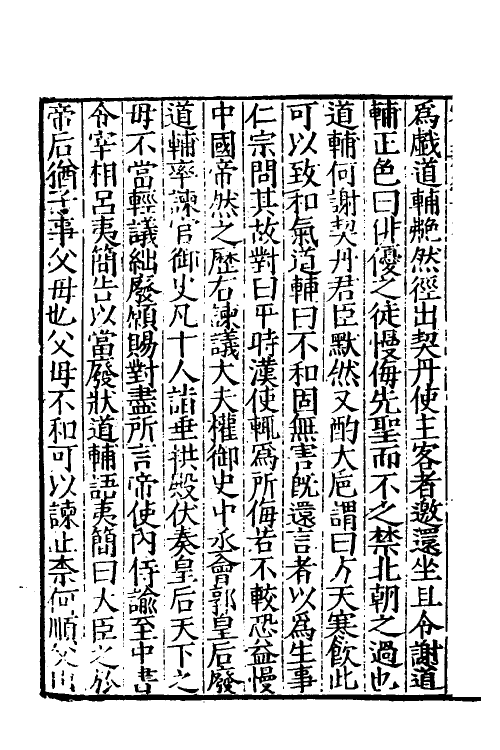 爲戲道輔艴然徑出契丹使主客者邀還坐且令謝道
輔正色曰俳優之徒慢侮先聖而不之禁北朝之過也
道輔何謝契丹君臣默然又酌大巵謂曰方天寒飲此
可以致和氣道輔曰不和固無害旣還言者以爲生事
仁宗問其故對曰平時漢使輒爲所侮若不較恐益慢
中國帝然之歷右諫議大夫權御史中丞會郭皇后廢
道輔率諫官御史凡十人詣垂拱殿伏奏皇后天下之
母不當輕議絀廢願賜對盡所言帝使內侍諭至中書
令宰相呂夷簡告以當廢狀道輔語夷簡曰大臣之於
帝后猶子事父母也父母不和可以諫止柰何順父出